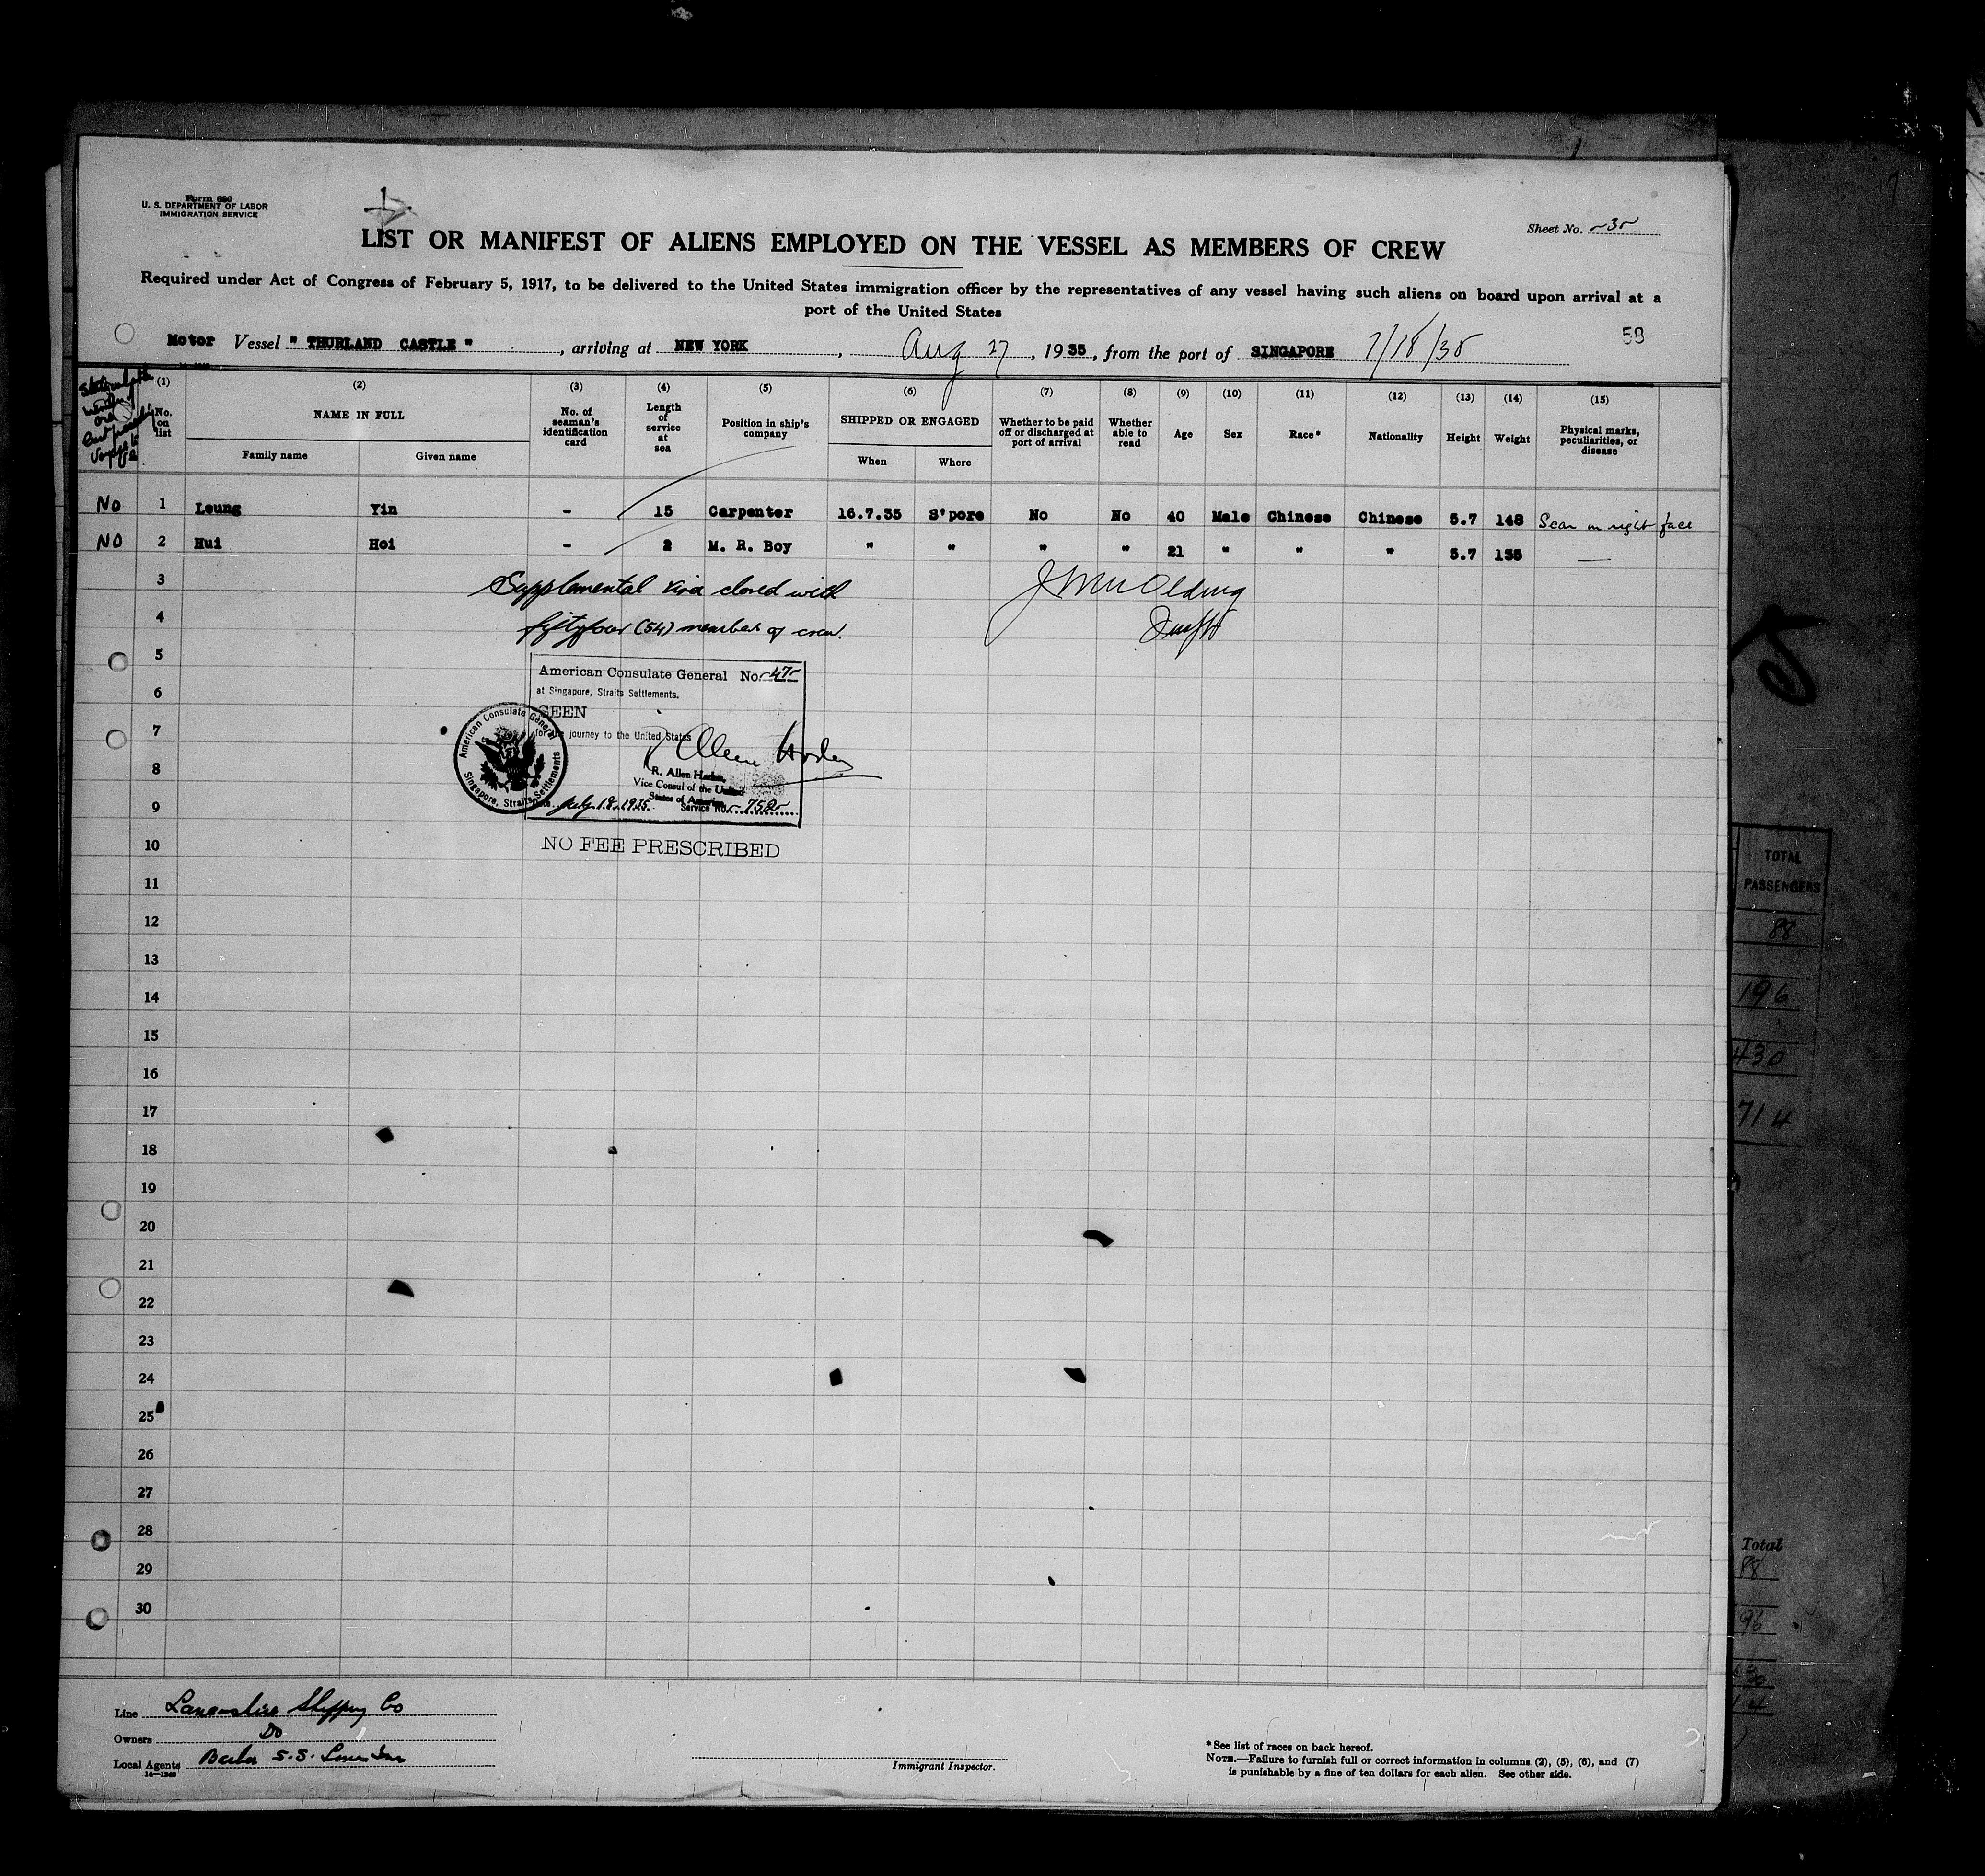 Form 680
U. S. DEPARTMENT OF LABOR
IMMIGRATION SERVICE
Sheet No. -3-
LIST OR MANIFEST OF ALIENS EMPLOYED ON THE VESSEL AS MEMBERS OF CREW
Required under Act of Congress of February 5, 1917, to be delivered to the United States immigration officer by the representatives of any vessel having such aliens on board upon arrival at a
port of the United States
Motor Vessel " THURLAND CASTLE " , arriving at NEW YORK , Aug 27 , 1935, from the port of SINGAPORE 7/18/35
53
(1) (2) (3) (4) (5) (6) (7) (8) (9) (10) (11) (12) (13) (14) (15)
No. on list
NAME IN FULL
Family name Given name
No. of seaman's identification card
Length of service at sea
Position in ship's company
SHIPPED OR ENGAGED
When Where
Whether to be paid off or discharged at port of arrival
Whether able to read
Age Sex Race* Nationality Height Weight
Physical marks, peculiarities, or disease
No 1 Leung Yin - 15 Carpenter 16.7.35 S'pore No No 40 Male Chinese Chinese 5.7 148 Scar on right face
No 2 Hui Hoi - 2 M. R. Boy " " " " 21 " " " 5.7 135 —
3
Supplemental visa closed with
4
fiftyfour (54) members of crew.
5
American Consulate General No. -47-
at Singapore, Straits Settlements.
6
SEEN
7
for the journey to the United States
American Consulate General
Singapore, Straits Settlements
8
R. Allen Haden,
Vice Consul of the United
States of America
9
July 18, 1935. Service No. -758-
10
NO FEE PRESCRIBED
11
12
13
14
15
16
17
18
19
20
21
22
23
24
25
26
27
28
29
30
Line Lancashire Shipping Co
Owners Do
Local Agents Barber S.S. Lines Inc
14—1240
Immigrant Inspector.
*See list of races on back hereof.
NOTE.—Failure to furnish full or correct information in columns (2), (5), (6), and (7)
is punishable by a fine of ten dollars for each alien. See other side.
TOTAL
PASSENGERS
88
196
430
714
Total
88
96